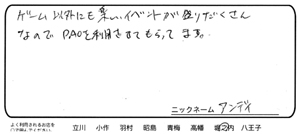 ゲーム以外にも楽しいイベントが盛りだくさん
なのでPAOを利用させてもらってます。
ニックネーム アンディ
よく利用されるお店を
○で囲んでください
立川 小作 羽村 昭島 青梅 高幡 堀之内 八王子